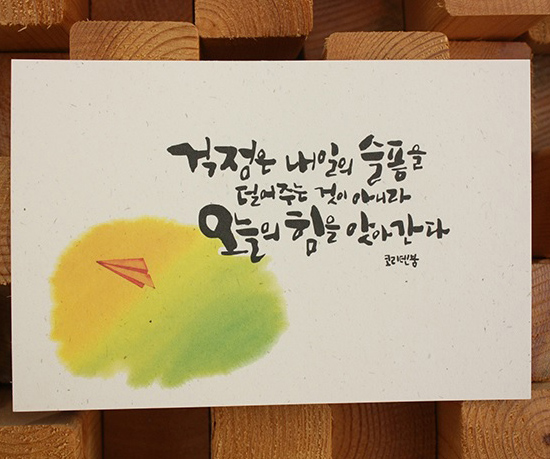 걱정은 내일의 슬픔을
덜어주는 것이 아니라
오늘의 힘을 앗아간다
코리텐붐